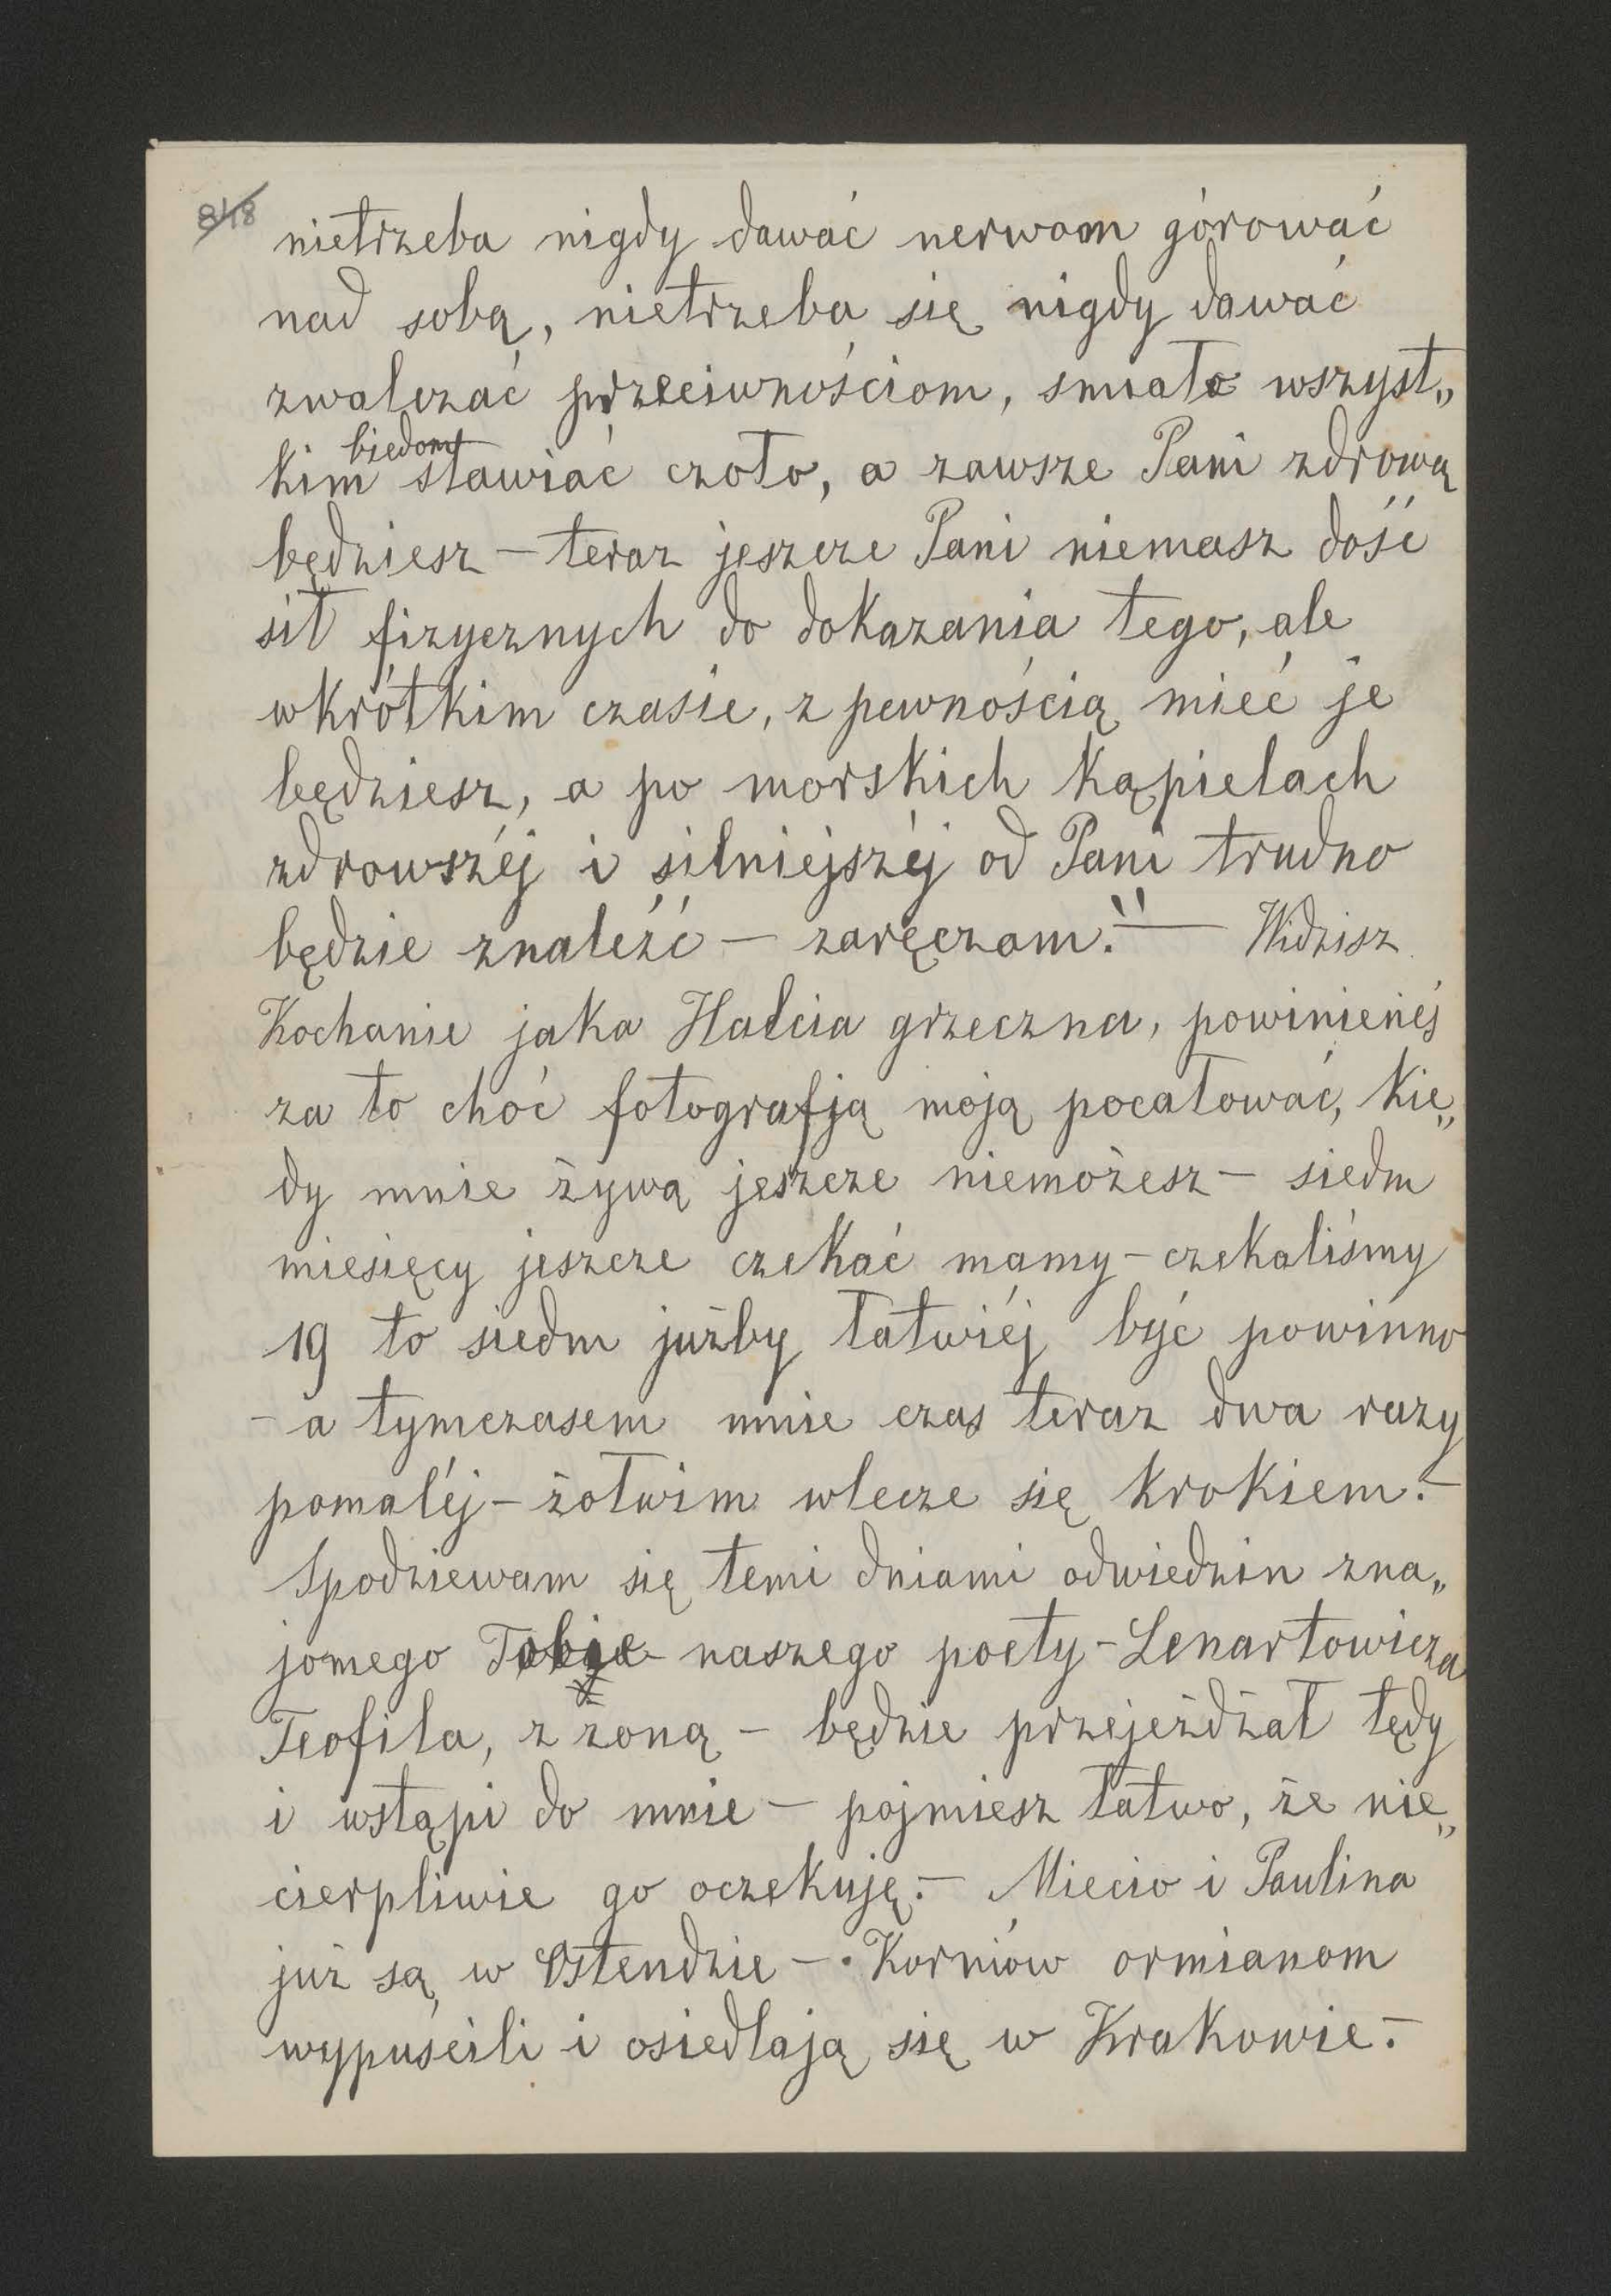 848
nietrzeba nigdy dawać nerwom górować
nad sobą, nietrzeba się nigdy dawać
zwalczać przeciwnościom, smiało wszyst„
biedom
kim stawiać czoło, a zawsze Pani zdrową
będziesz – teraz jeszcze Pani niemasz dość
sił fizycznych do dokazania tego, ale
wkrótkim czasie, z pewnością mieć je
będziesz, a po morskich kąpielach
zdrowszéj i silniejszéj od Pani trudno
będzie znaleźć – zaręczam." — Widzisz
Kochanie jaka Halcia grzeczna, powinieneś
za to choć fotografją moją pocałować, kie„
dy mnie żywą jeszcze niemożesz – siedm
miesięcy jeszcze czekać mamy – czekaliśmy
19 to siedm jużby łatwiéj być powinno
– a tymczasem mnie czas teraz dwa razy
pomaléj – żółwim wlecze się krokiem. –
Spodziewam się temi dniami odwiedzin zna„
jomego Tobie naszego poety – Lenartowicza
Teofila, z żoną – będzie przejeżdżał tędy
i wstąpi do mnie – pojmiesz łatwo, że nie„
cierpliwie go oczekuję. – Miecio i Paulina
już są w Ostendzie – Korniów ormianom
wypuścili i osiedlają się w Krakowie. –